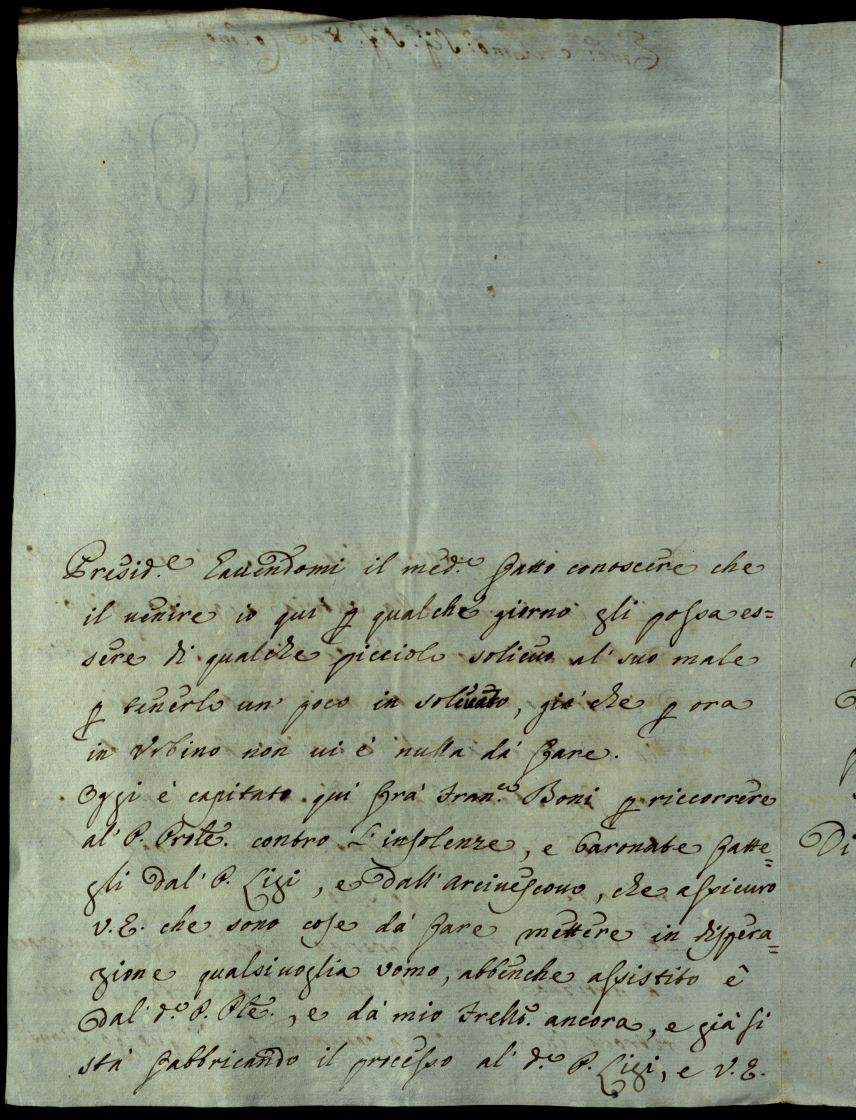 Presid.e Havendomi il med.o fatto conoscere che
il venire io qui p qualche giorno gli possa es=
sere di qualche picciolo solievo al' suo male
p tenerlo un' poco in solievo, già che p ora
in Urbino non vi è nulla dà fare.
Oggi è capitato qui frà Fran.co Boni p riccorrere
al' P. Prõte. contro L'insolenze, e baronate fatte=
gli Dal' P. Ligi, e Dall' Arcivescovo, che assicuro
V.E. che sono cose dà fare mettere in dispera=
zione qualsivoglia Uomo, abbenche assistito è
Dal' d.o P. Pte., e dà mio Frello. ancora, e già si
stà fabbricando il processo al' d.o P. Ligi, e V.E.
Di